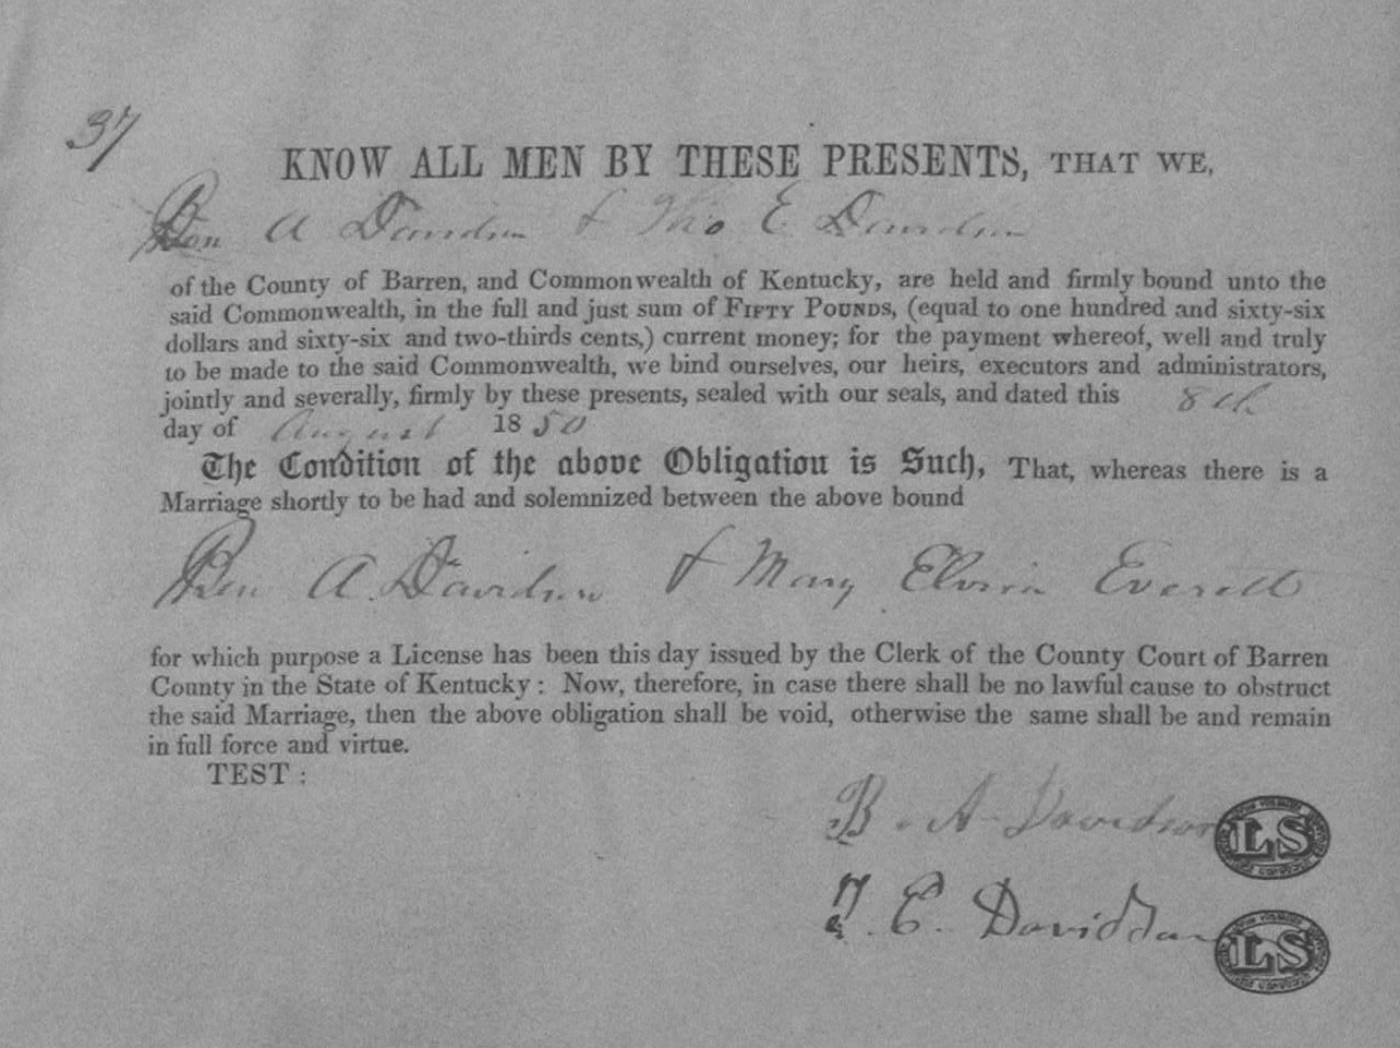 37
KNOW ALL MEN BY THESE PRESENTS, THAT WE,
Ben A Davidson & Tho E Davidson
of the County of Barren, and Commonwealth of Kentucky, are held and firmly bound unto the
said Commonwealth, in the full and just sum of FIFTY POUNDS, (equal to one hundred and sixty-six
dollars and sixty-six and two-thirds cents,) current money; for the payment whereof, well and truly
to be made to the said Commonwealth, we bind ourselves, our heirs, executors and administrators,
jointly and severally, firmly by these presents, sealed with our seals, and dated this 8th
day of August 1850
The Condition of the above Obligation is Such, That, whereas there is a
Marriage shortly to be had and solemnized between the above bound
Ben A. Davidson & Mary Elvira Everett
for which purpose a License has been this day issued by the Clerk of the County Court of Barren
County in the State of Kentucky: Now, therefore, in case there shall be no lawful cause to obstruct
the said Marriage, then the above obligation shall be void, otherwise the same shall be and remain
in full force and virtue.
TEST:
B. A. Davidson LS
T. E. Davidson LS